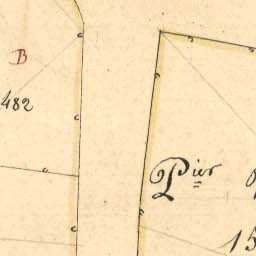 B
482
Pier
15